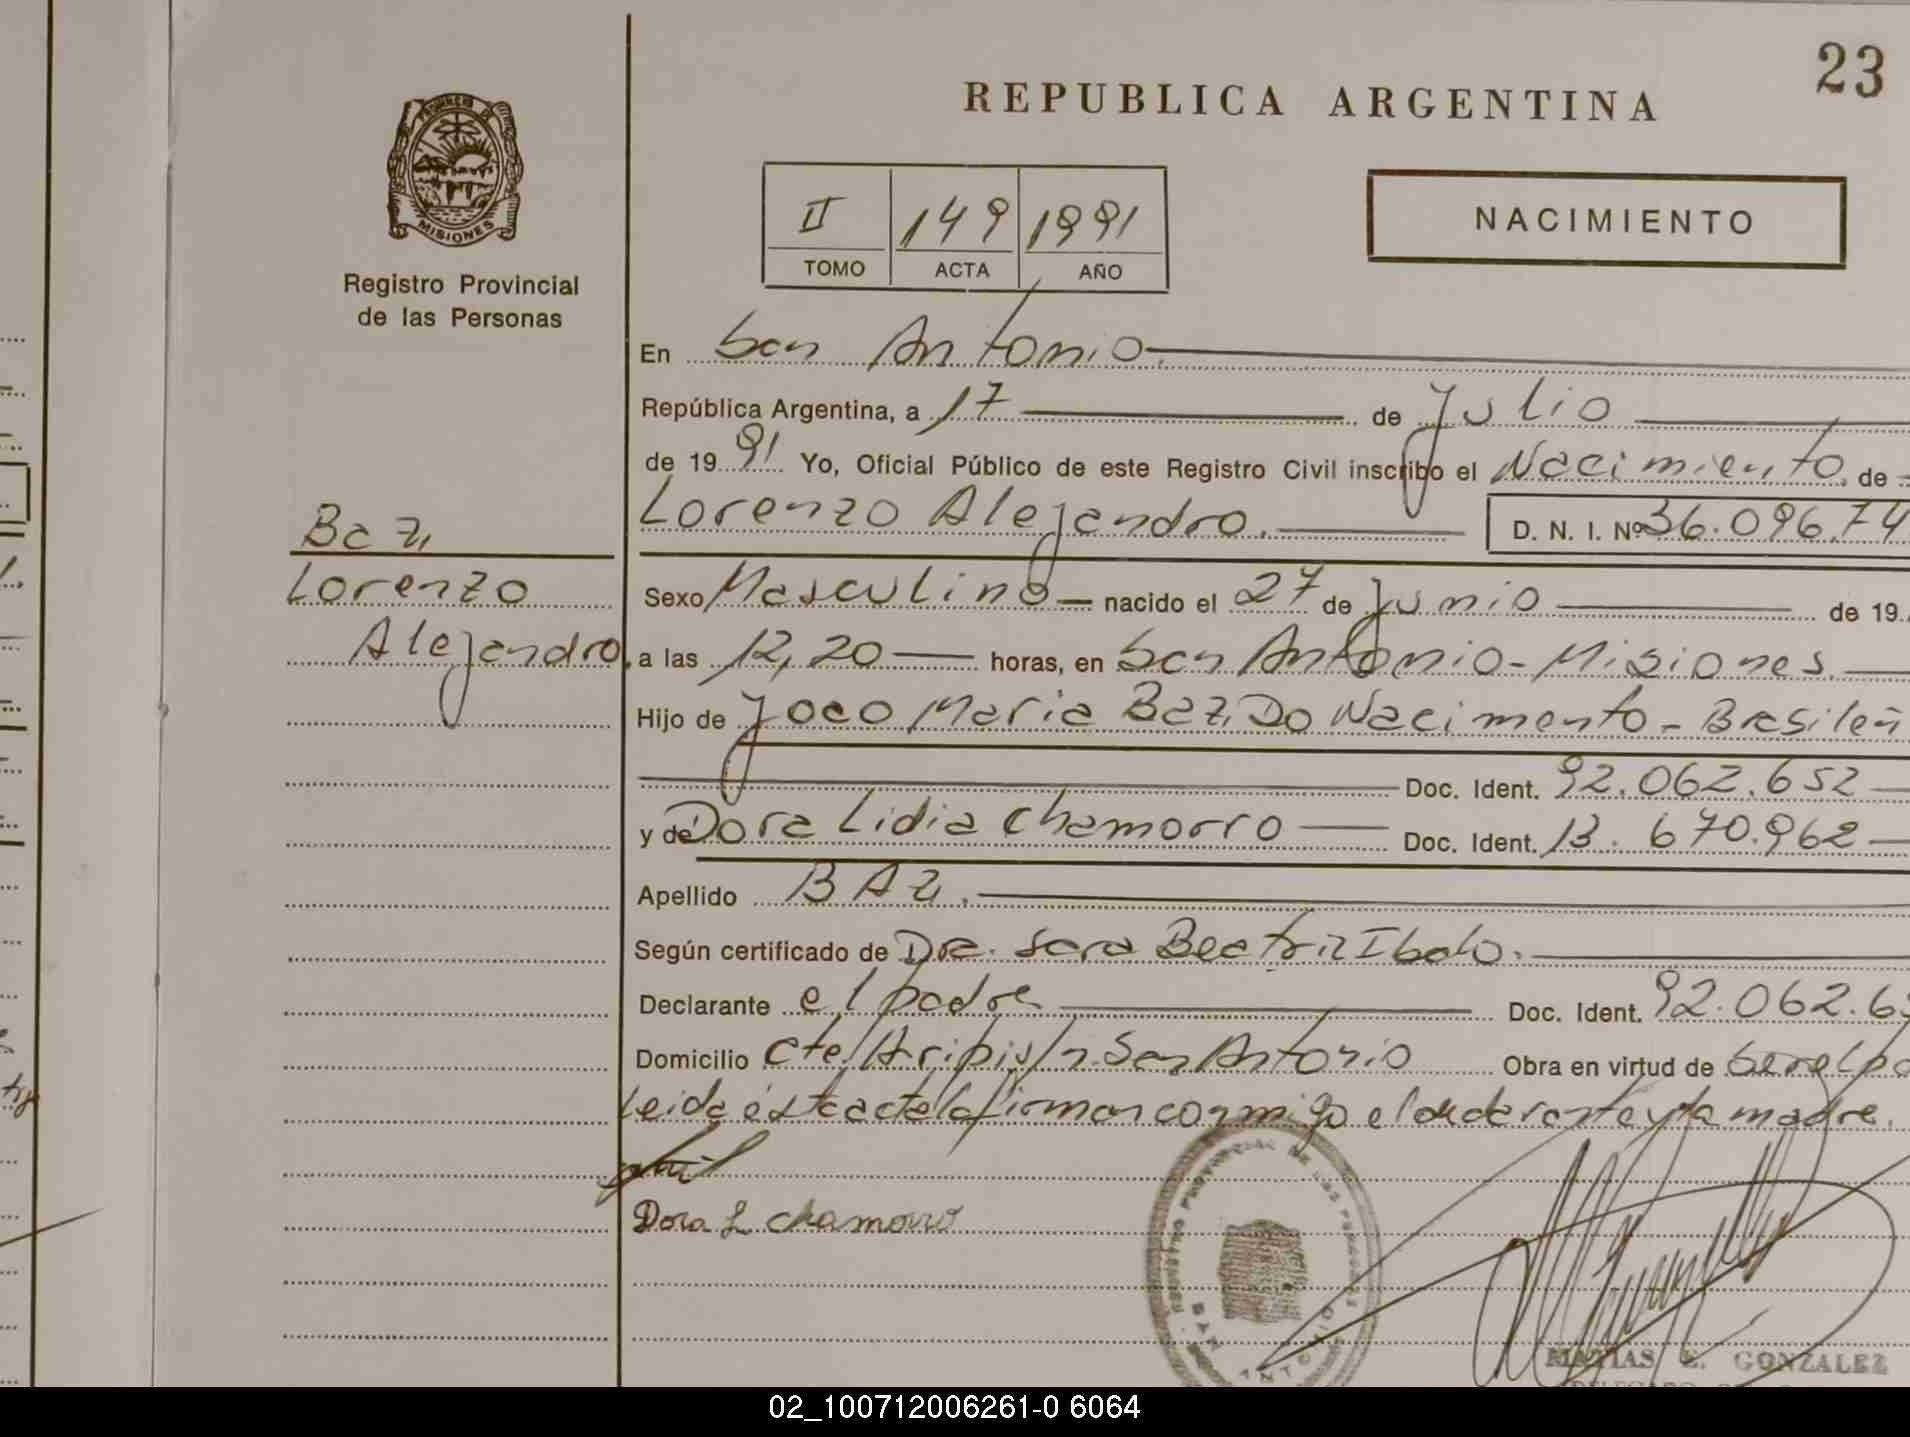 23
REPUBLICA ARGENTINA
PROVINCIA DE
MISIONES
Registro Provincial
de las Personas
II 149 1991
TOMO ACTA AÑO
NACIMIENTO
En San Antonio.
República Argentina, a 17 de Julio
de 1991 Yo, Oficial Público de este Registro Civil inscribo el Nacimiento. de
Lorenzo Alejandro. D. N. I. Nº 36.096.74
Baz,
Lorenzo
Alejandro.
Sexo Masculino nacido el 27 de Junio de 19
a las 12,20 horas, en San Antonio - Misiones.
Hijo de Joao Maria Baz, Do Nacimento - Brasileñ
Doc. Ident. 92.062.652
y de Dora Lidia Chamorro Doc. Ident. 13.670.962
Apellido BAZ.
Según certificado de Dra. Sara Beatriz Ibalo.
Declarante el padre Doc. Ident. 92.062.65
Domicilio Cte/ s/n. San Antonio Obra en virtud de Ser el pa
Leida ésta acta la firman conmigo el declarante y la madre.
Dora L Chamorro
REGISTRO PROVINCIAL DE LAS PERSONAS
SAN ANTONIO
MATIAS E. GONZALEZ
02_100712006261-0 6064